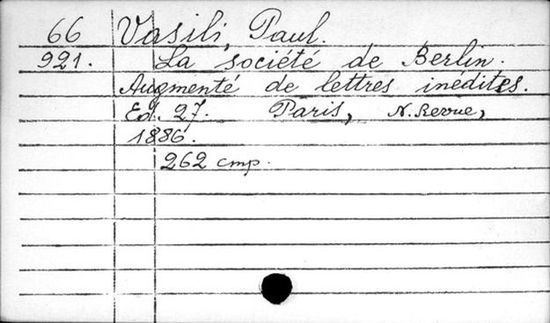 66 Vasili, Paul.
921. La société de Berlin.
Augmenté de lettres inédites.
Ed. 27. Paris, N. Revue,
1886.
262 стр.